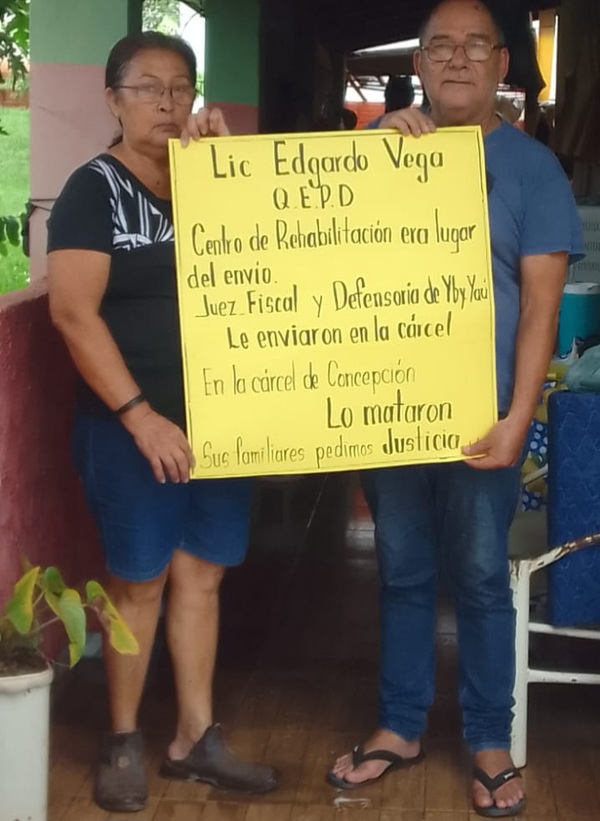 Lic Edgardo Vega
Q.E.P.D
Centro de Rehabilitación era lugar
del envío.
Juez Fiscal y Defensoria de Yby Yaú
Le enviaron en la cárcel
En la cárcel de Concepción
Lo mataron
Sus familiares pedimos Justicia